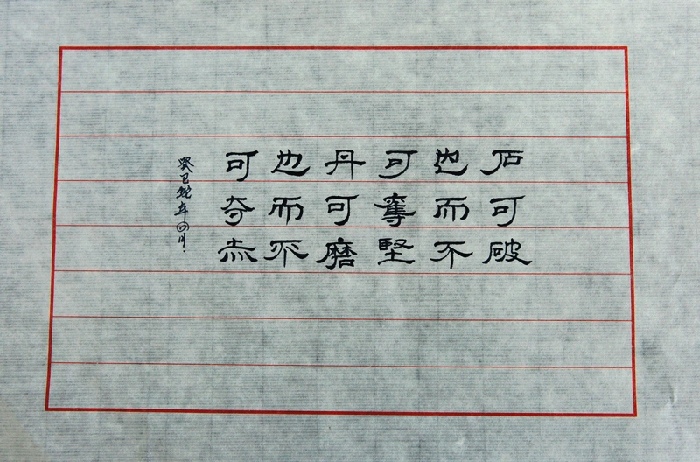 石可破
也而不
可奪堅
丹可磨
也而不
可夺赤
癸巳蛇年四月